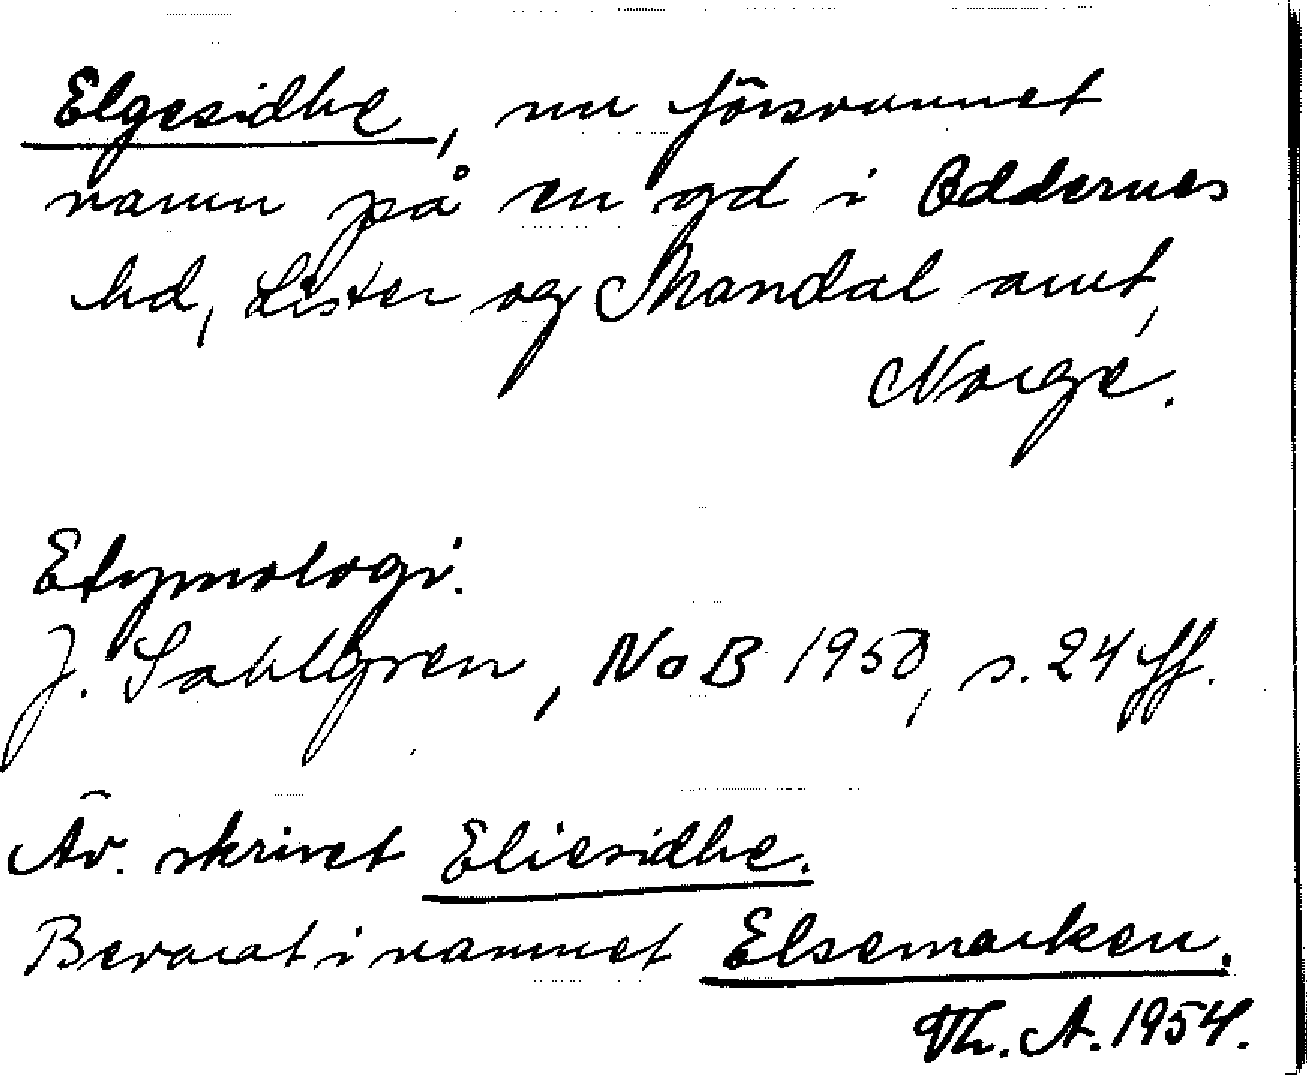 Elgesidhe, nu försvunnet
namn på en gd i Oddernes
hd, Lister og Mandal amt,
Norge.
Etymologi.
J. Sahlgren, NoB 1950, s. 24 ff.
Äv. skrivet Eliesidhe.
Bevarat i namnet Elsemarken.
Th. A. 1954.